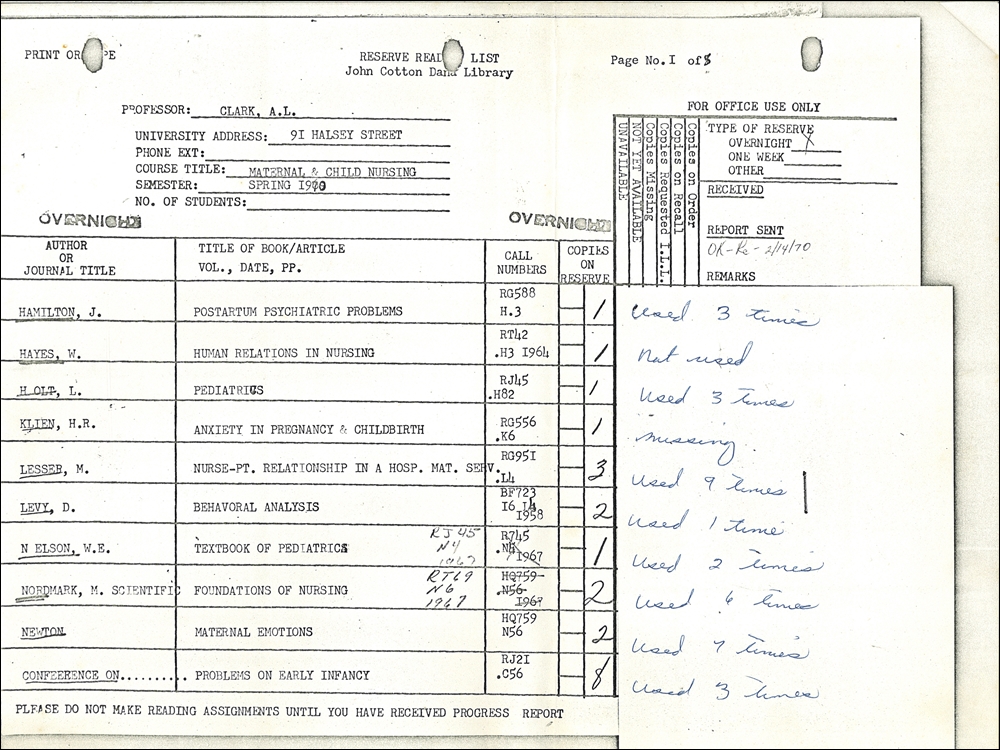 PRINT OR PE
RESERVE READ LIST
John Cotton Dana Library
Page No.I of 5
PROFESSOR: CLARK, A.L.
UNIVERSITY ADDRESS: 9I HALSEY STREET
PHONE EXT:
COURSE TITLE: MATERNAL & CHILD NURSING
SEMESTER: SPRING I970
NO. OF STUDENTS:
FOR OFFICE USE ONLY
Copies on Order
Copies on Recall
Copies Requested I.L.L.
Copies Missing
NOT YET AVAILABLE
UNAVAILABLE
TYPE OF RESERVE
OVERNIGHT X
ONE WEEK
OTHER
RECEIVED
REPORT SENT
OK-Re-2/14/70
REMARKS
OVERNIGHT OVERNIGHT
AUTHOR
OR
JOURNAL TITLE
TITLE OF BOOK/ARTICLE
VOL., DATE, PP.
CALL
NUMBERS
COPIES
ON
RESERVE
HAMILTON, J. POSTARTUM PSYCHIATRIC PROBLEMS RG588
H.3 1 Used 3 times
HAYES, W. HUMAN RELATIONS IN NURSING RT42
.H3 I964 1 Not used
H OLT, L. PEDIATRICS RJ45
.H82 1 Used 3 times
KLIEN, H.R. ANXIETY IN PREGNANCY & CHILDBIRTH RG556
.K6 1 missing
LESSER, M. NURSE-PT. RELATIONSHIP IN A HOSP. MAT. SERV. RG95I
.L4 3 Used 9 times
LEVY, D. BEHAVORAL ANALYSIS BF723
I6 L4
I958 2 Used 1 time
N ELSON, W.E. TEXTBOOK OF PEDIATRICS RJ45
N4
1967 R745
.N4
I967 1 Used 2 times
NORDMARK, M. SCIENTIFIC FOUNDATIONS OF NURSING RT69
N6
1967 HQ759
.N56
I967 2 Used 6 times
NEWTON MATERNAL EMOTIONS HQ759
N56 2 Used 7 times
CONFEERENCE ON.......... PROBLEMS ON EARLY INFANCY RJ2I
.C56 8 Used 3 times
PLEASE DO NOT MAKE READING ASSIGNMENTS UNTIL YOU HAVE RECEIVED PROGRESS REPORT